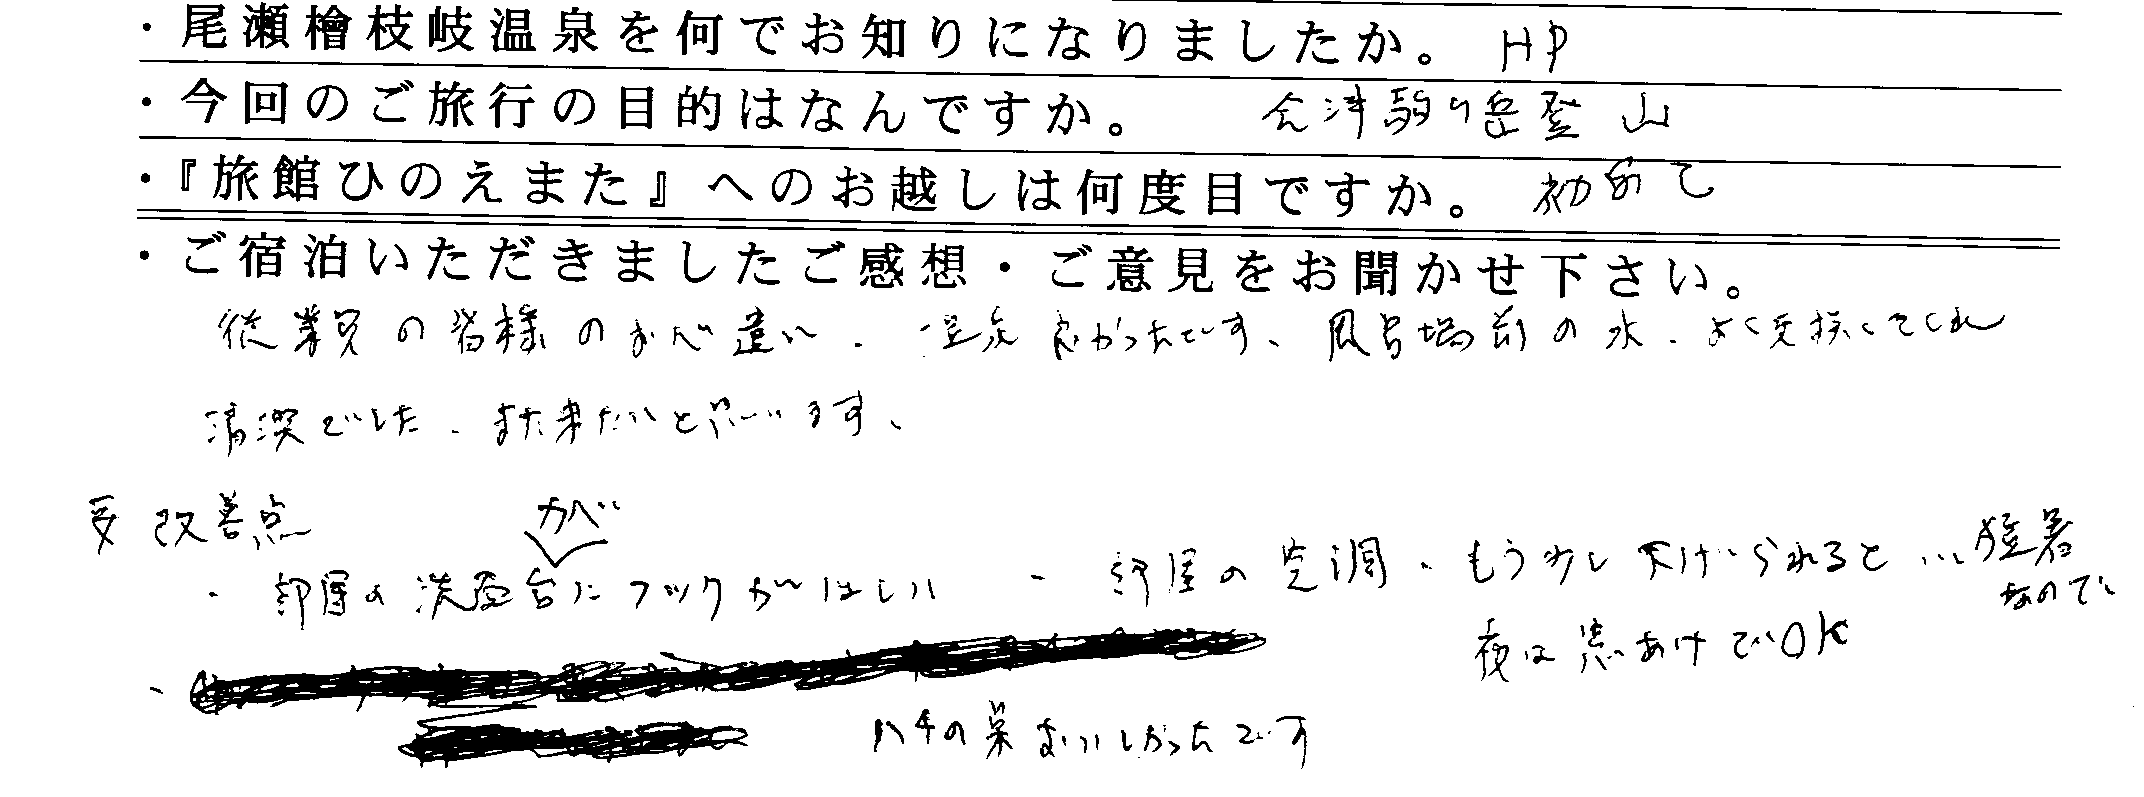 ・尾瀬檜枝岐温泉を何でお知りになりましたか。 HP
・今回のご旅行の目的はなんですか。 会津駒ヶ岳登山
・『旅館ひのえまた』へのお越しは何度目ですか。 初めて
・ご宿泊いただきましたご感想・ご意見をお聞かせ下さい。
従業員の皆様のお心遣い、 良かったです、風呂場前の水、よく交換してくれ
清潔でした、また来たいと思います、
要改善点
かべ
・部屋の洗面台にフックがほしい ・部屋の空調、もう少し下げられると…
なので
夜は窓あけでOK
ハチの巣おいしかったです